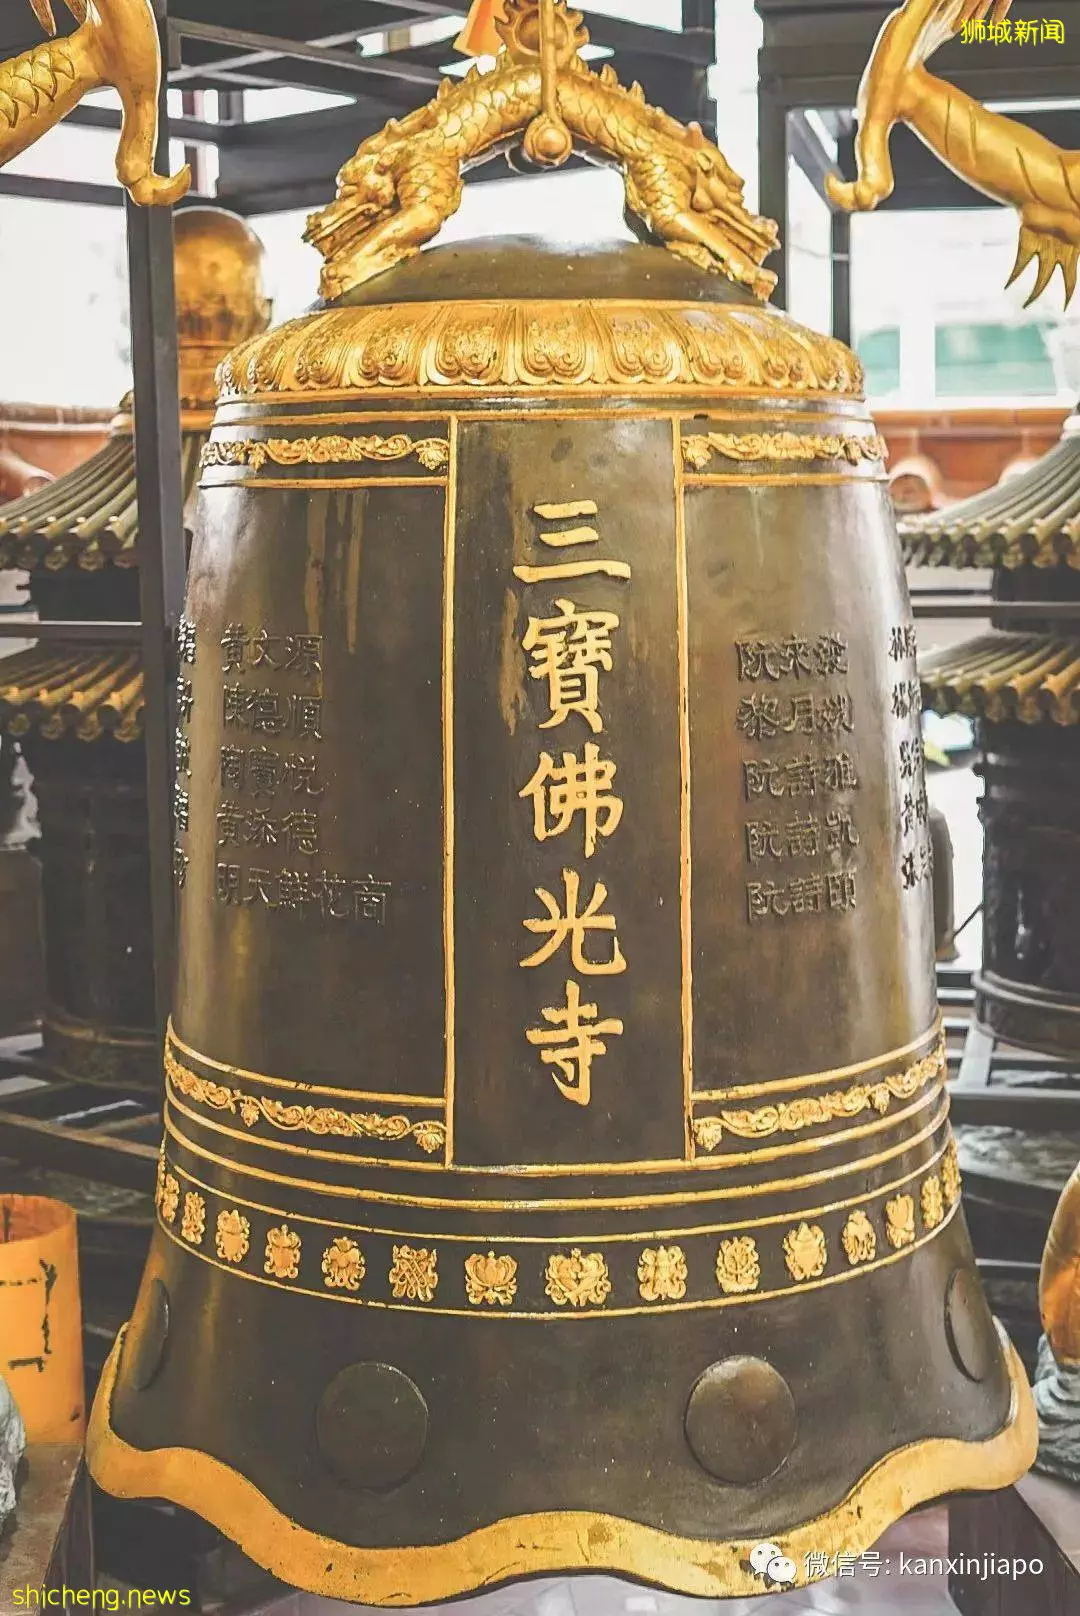 狮城新闻
三寶佛光寺
黄文源
陳德順
陶寶悦
黄添德
明天鮮花商
阮來發
黎月娥
阮詩雅
阮詩凱
阮詩頤
微信号: kanxinjiapo
shicheng.news